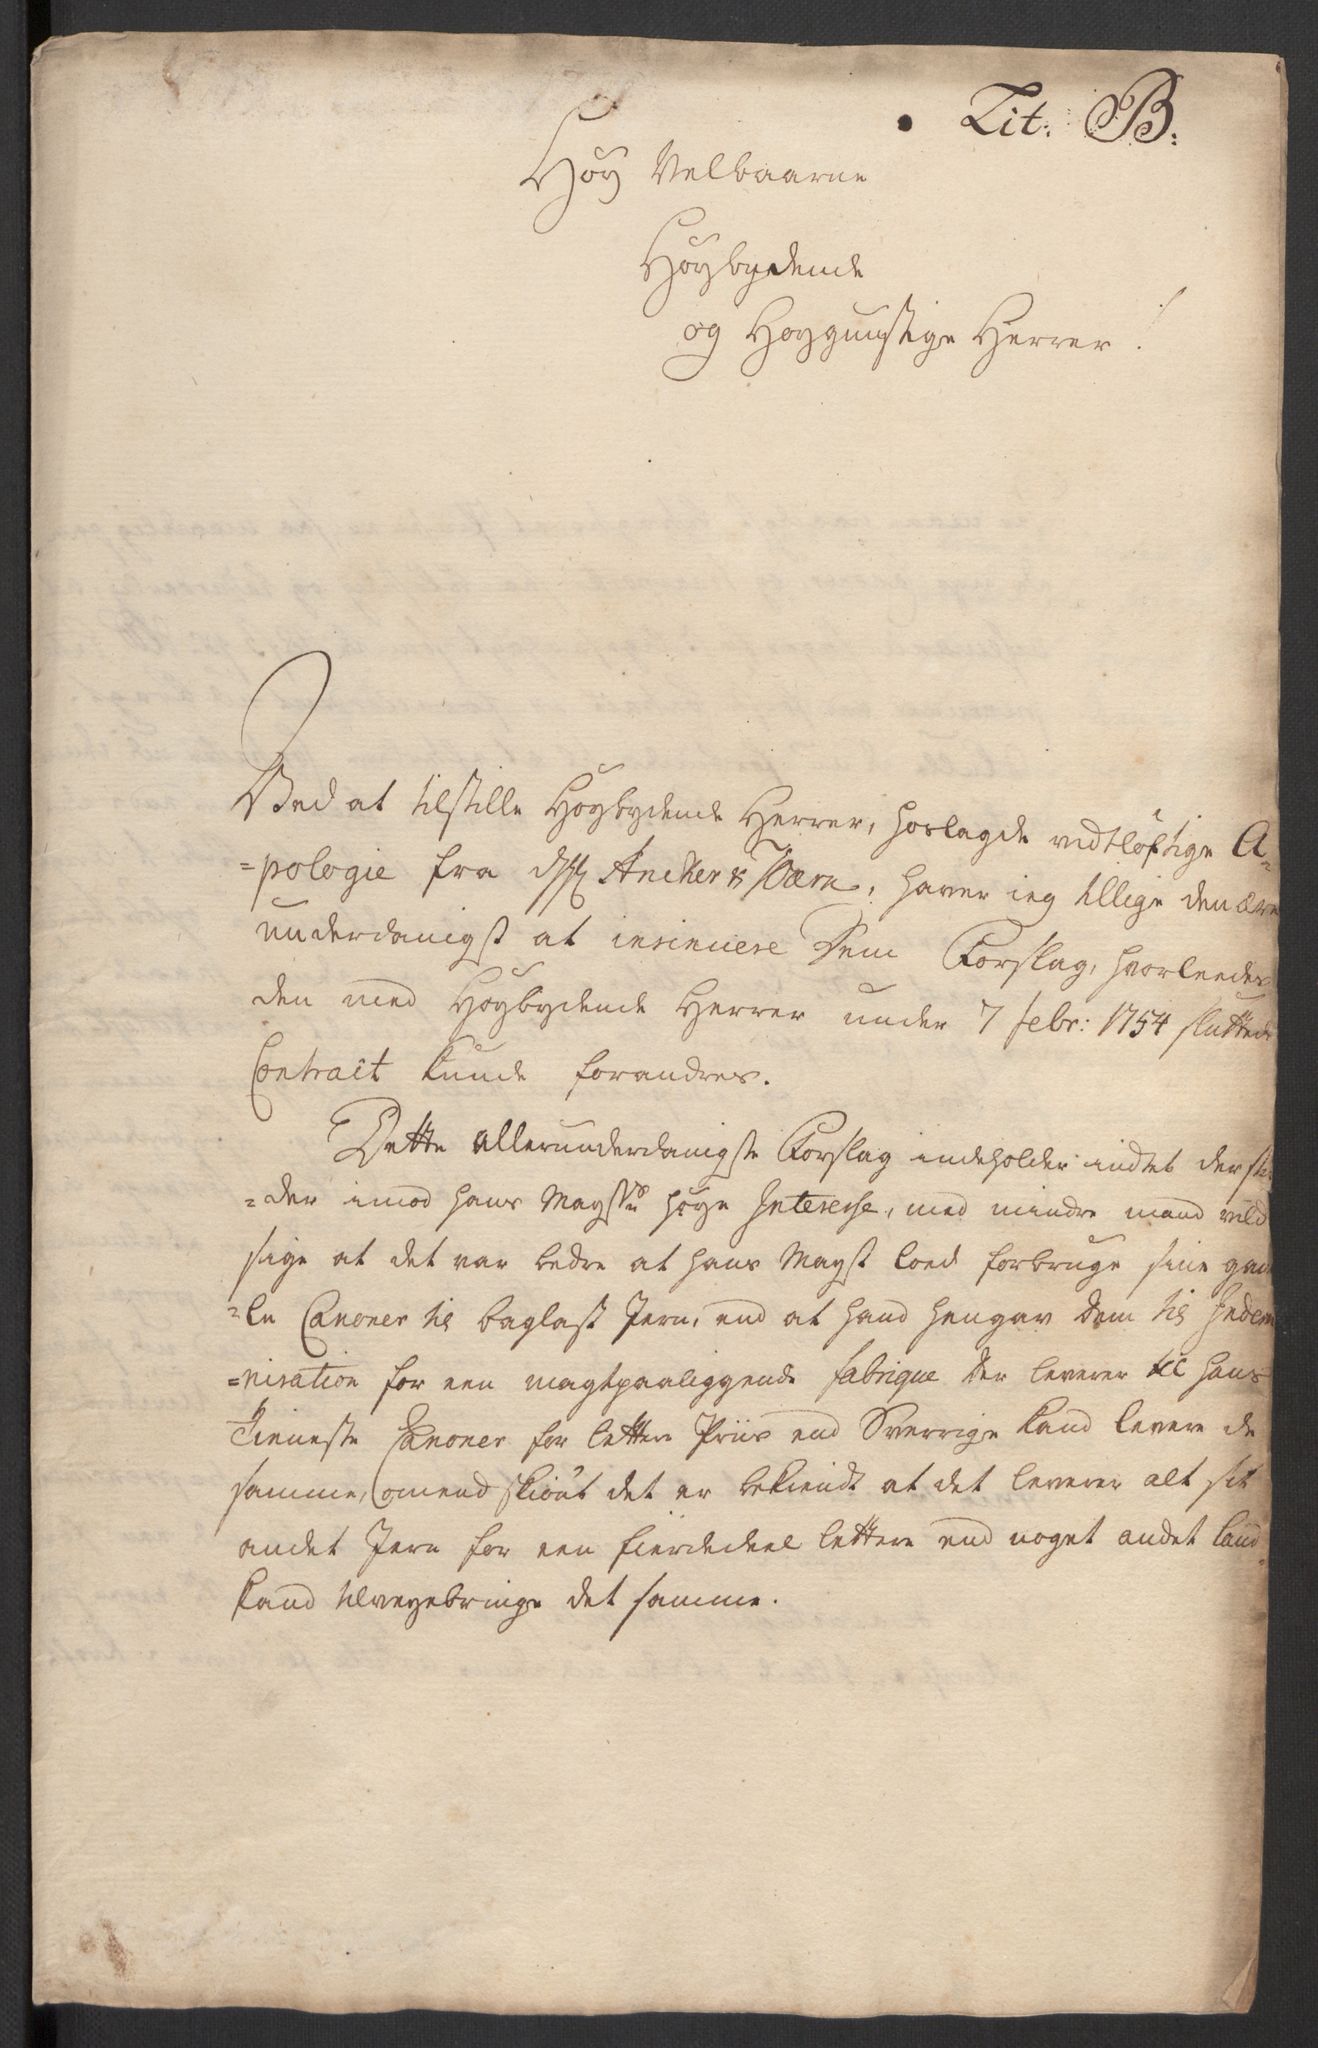 Lit: B:
Høy Velbaarne
Høybydende
og Høygunstige Herrer!
Ved at tilstille Høybydende Herrer, hoslagde vidtløftige A-
=pologie fra dhH Ancker & Wærn, haver ieg tillige den ære
underdanigst at insinuere dem Forslag, hvorleedes
den med Høybydende Herrer under 7 febr: 1754 sluttede
Contract kunde forandres.
Dette allerunderdanigste Forslag indeholder indtet der stri-
=der imod hans Mayst høye Interesse, med mindre mand vilde
sige at det var bedre at hans Mayst loed forbruge sine gam
=le Canoner til baglast Jern, end at hand hengav dem til Indem
=nisation for een magtpaaliggende fabrique der leverer til hans
Tieneste Canoner for lettere Priis end Sverrige kand levere de
samme, omend skiønt det er bekiendt at det leverer alt sit
andet Jern for een fierdedeel lettere end noget andet Land
kand tilveyebringe det samme.